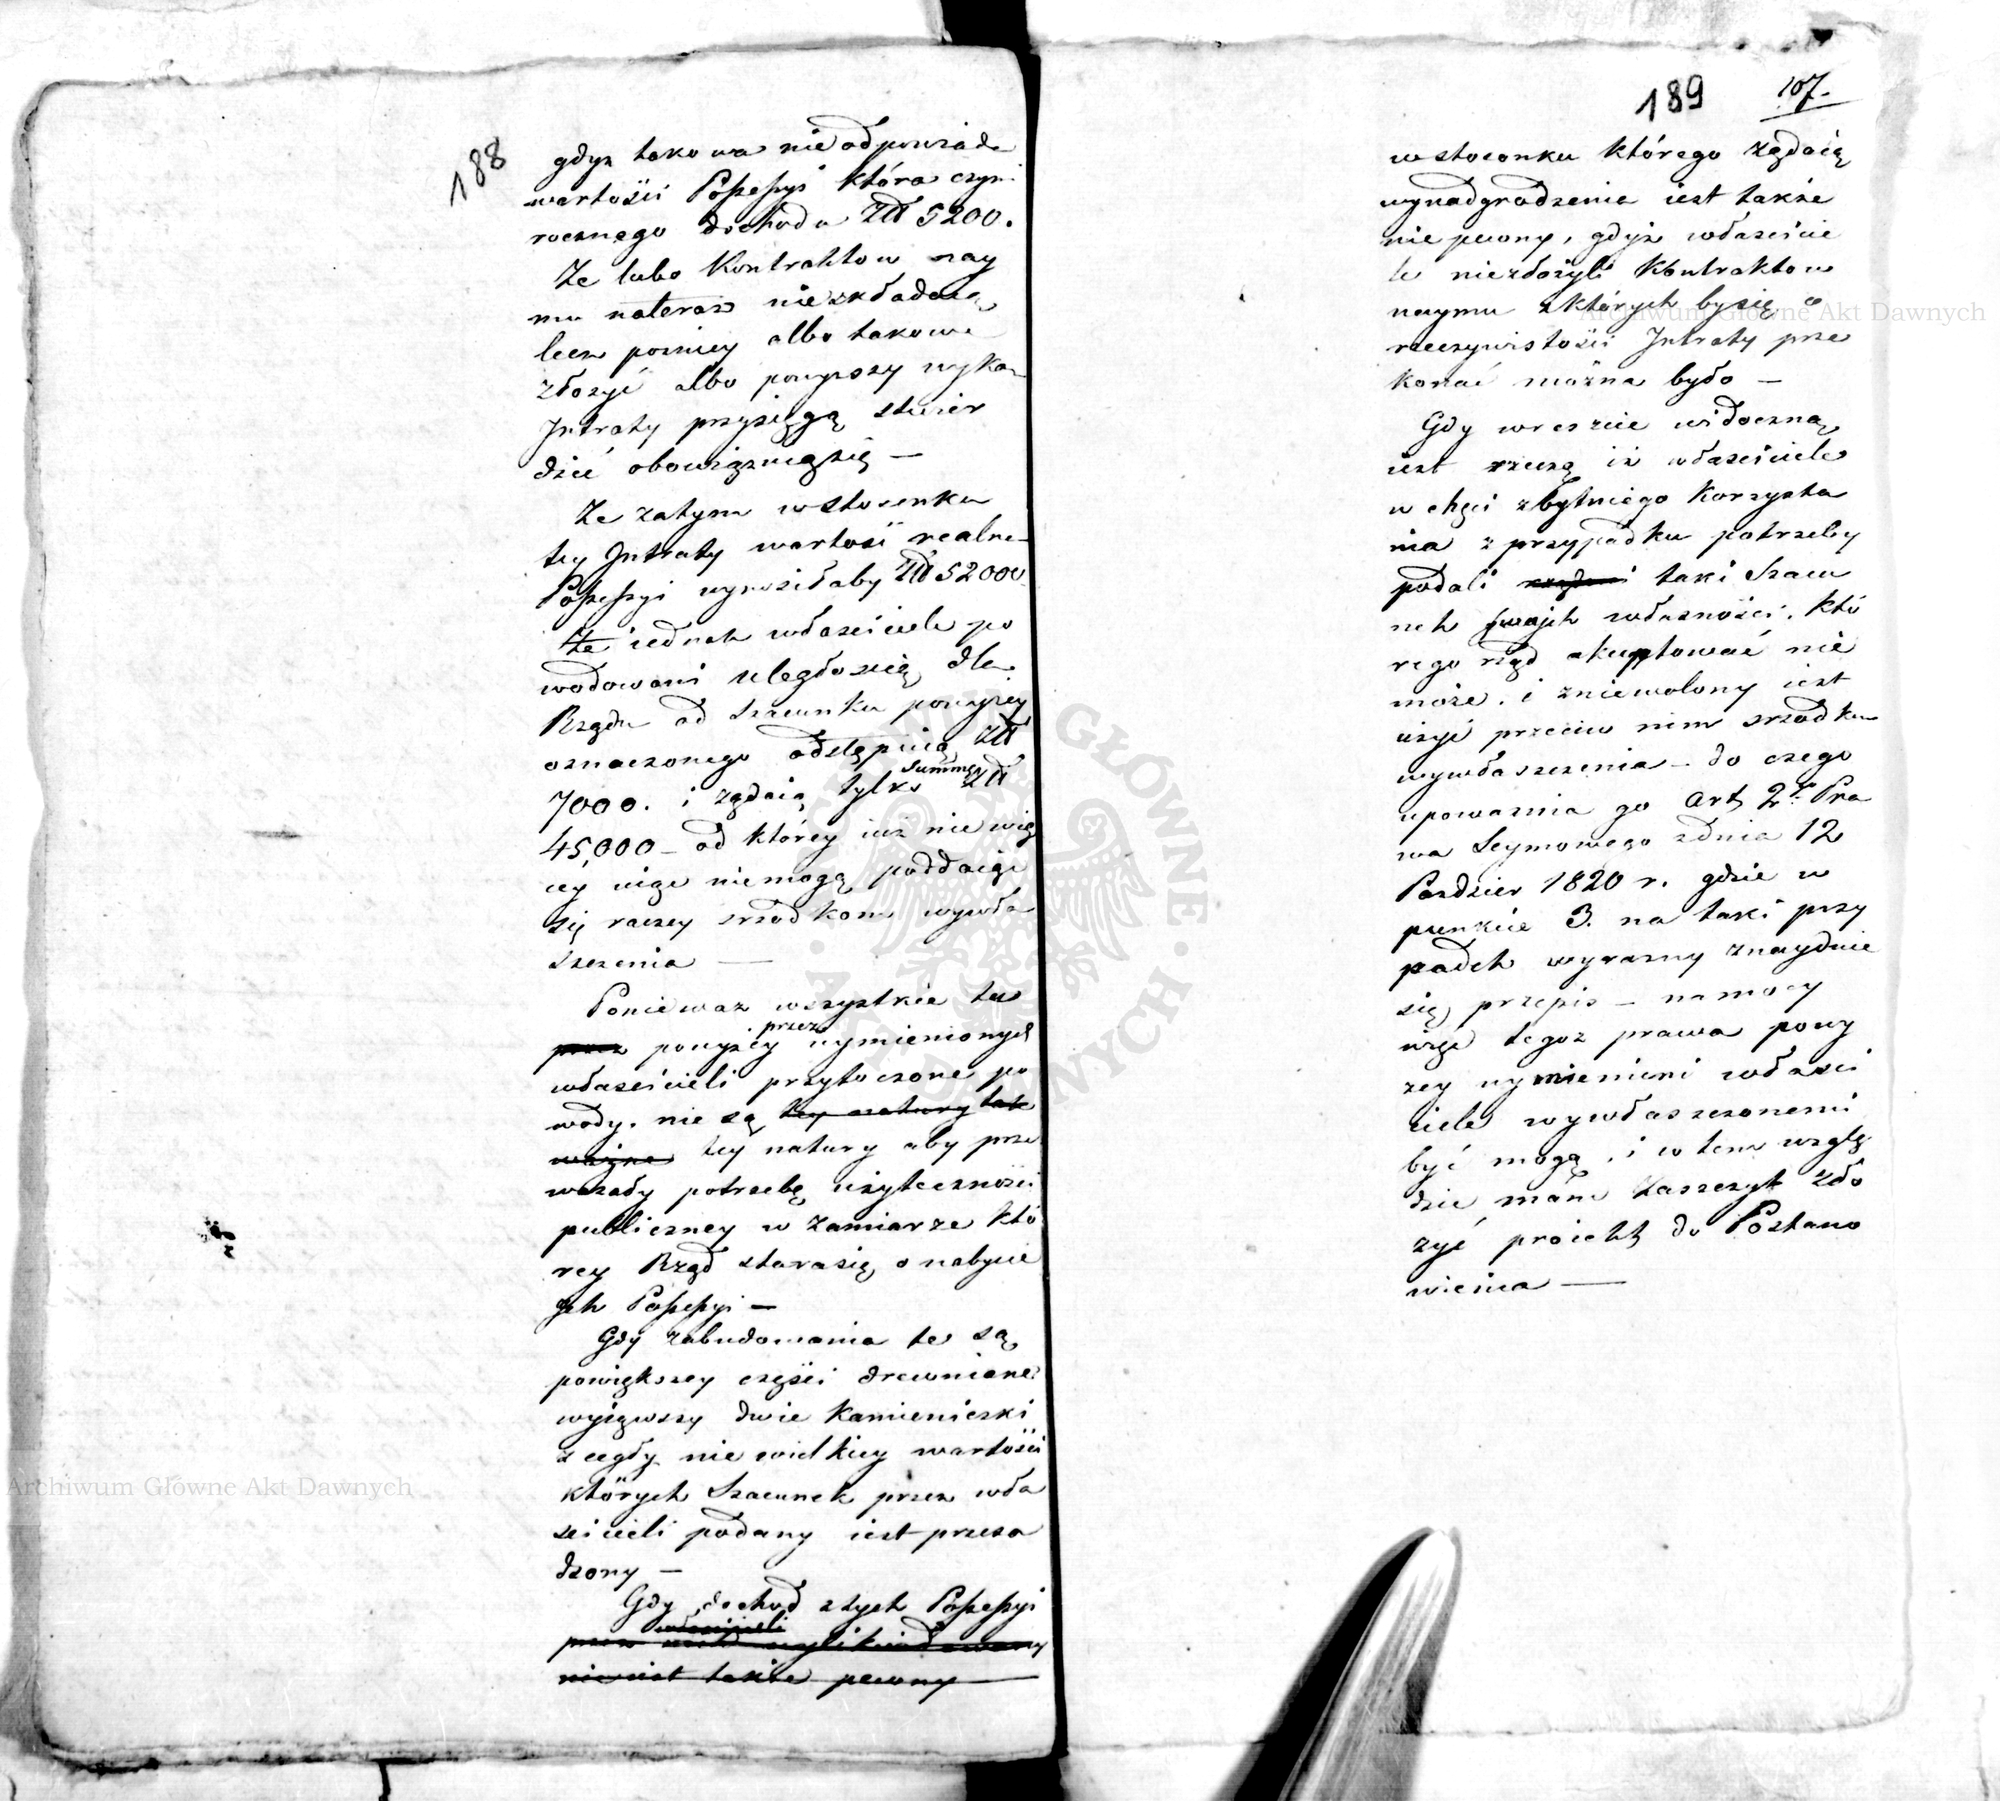 188
gdyz takowa nieodpowiada
wartości Possessyi która czyni
rocznego dochodu Złł 5200.
Ze lubo Kontraktow nay
mu nateraz nieskładaią
lecz pozniey albo takowe
złożyć albo powyższy wykaz
Jntraty przysięgą stwier
dzić obowiązuiąsię —
Ze zatym wstosunku
tey Jntraty wartość realna
Possessyi wynosiłaby Złł 52000
Ze iednak właściciele po
wodowani uległością dla
Rządu od Szacunku powyżey
oznaczonego odstępuią Złł
7000. i żądaią tylko summy Złł
45,000 – od którey iuż nie wię
cey iuże niemogą poddaiąc
się raczey srzodkom wywła
szczenia —
Poniewaz wszystkie te
przez powyżey przez wymienionych
właścicieli przytoczone po
wody. nie są tey natury tak
ważne tey natury aby prze
ważały potrzebę użyteczności
publiczney w zamiarze któ
rey Rząd starasię o nabycie
tych Possessyi —
Gdy zabudowania te są
powiększey części drewniane
wyiąwszy dwie Kamieniczki
z cegły nie wielkiey wartości
których Szacunek przez wła
ścicieli podany iest przesa
dzony —
Gdy dochod z tych Possessyi
właścicieli
przez nich wylikwidowany
nieiest także pewny —
189 107.
wstosunku którego żądaią
wynadgrodzenia iest także
niepewny, gdyż właścicie
le niezłożyli Kontraktow
naymu z których by się o
rzeczywistości Jntraty prze
konać można było —
Gdy wreszcie widoczną
iest rzeczą iż właściciele
w chęci zbytniego Korzysta
nia z przypadku potrzeby
podali taki Szacu
nek swojch własności. któ
rego rząd akceptować nie
może. i zniewolony iest
użyć przeciw nim srzodka
wywłaszczenia – do czego
upoważnia go Art 2. Pra
wa Seymowego zdnia 12
Pazdzier 1820 r. gdzie w
punkcie 3. na taki przy
padek wyrazny znayduie
się przepis – na mocy
więc tegoz prawa powy
żey wymienieni właści
ciele wywłaszczonemi
być mogą, i w tem wzglę
dzie mam zaszczyt zło
żyć proiekt do Postano
wienia —
Archiwum Główne Akt Dawnych
Archiwum Główne Akt Dawnych